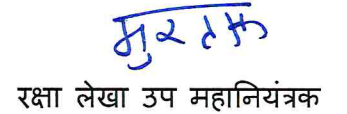 रक्षा लेखा उप महानियंत्रक